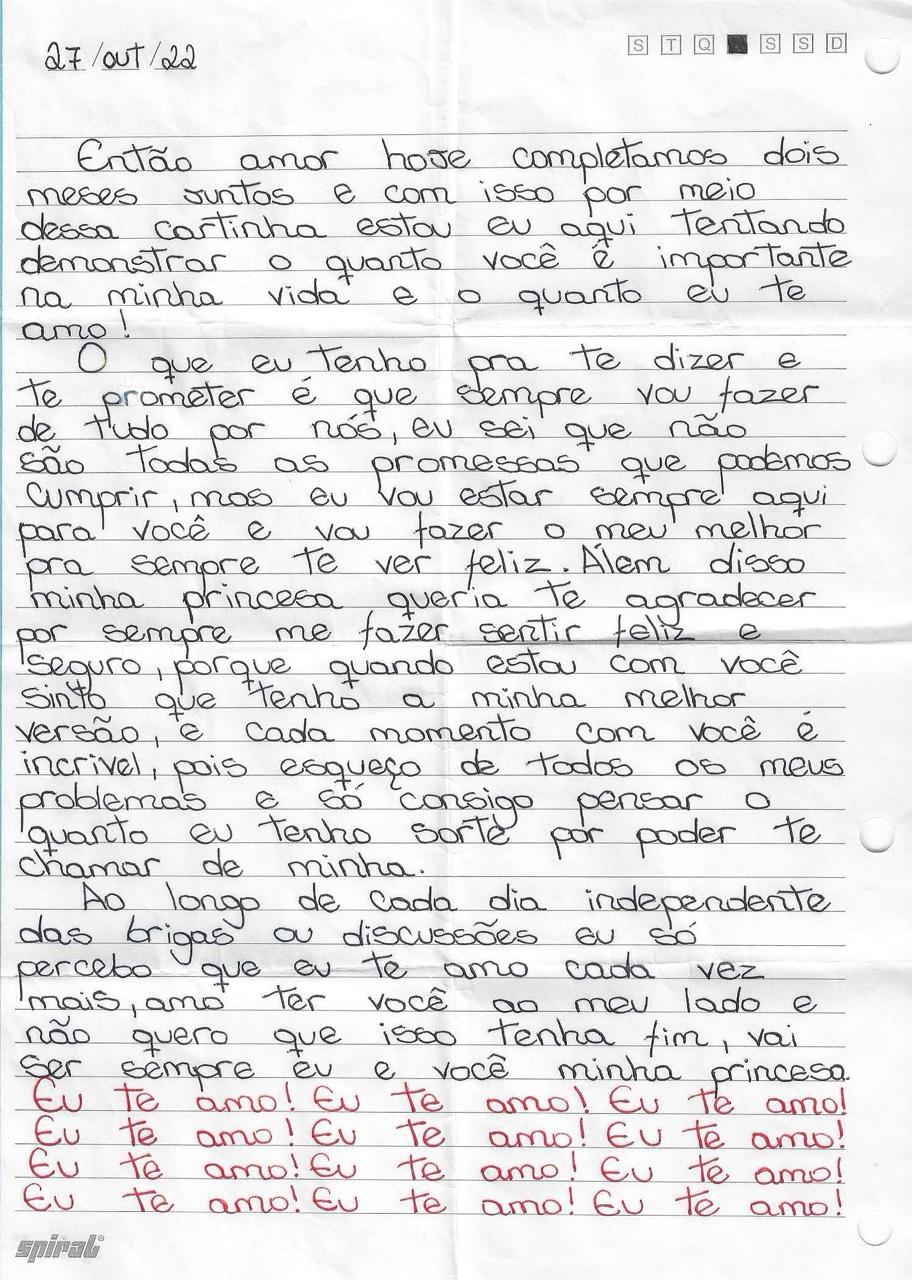 27/out/22
S T Q S S D
Então amor hoje completamos dois
meses juntos e com isso por meio
dessa cartinha estou eu aqui tentando
demonstrar o quanto você é importante
na minha vida e o quanto eu te
amo!
O que eu tenho pra te dizer e
te prometer é que sempre vou fazer
de tudo por nós, eu sei que não
são todas as promessas que podemos
cumprir, mas eu vou estar sempre aqui
para você e vou fazer o meu melhor
pra sempre te ver feliz. Além disso
minha princesa queria te agradecer
por sempre me fazer sentir feliz e
seguro, porque quando estou com você
sinto que tenho a minha melhor
versão, e cada momento com você é
incrivel, pois esqueço de todos os meus
problemas e só consigo pensar o
quanto eu tenho sorte por poder te
chamar de minha.
Ao longo de cada dia independente
das brigas ou discussões eu só
percebo que eu te amo cada vez
mais, amo ter você ao meu lado e
não quero que isso tenha fim, vai
ser sempre eu e você minha princesa.
Eu te amo! Eu te amo! Eu te amo!
Eu te amo! Eu te amo! Eu te amo!
Eu te amo! Eu te amo! Eu te amo!
Eu te amo! Eu te amo! Eu te amo!
spiral®